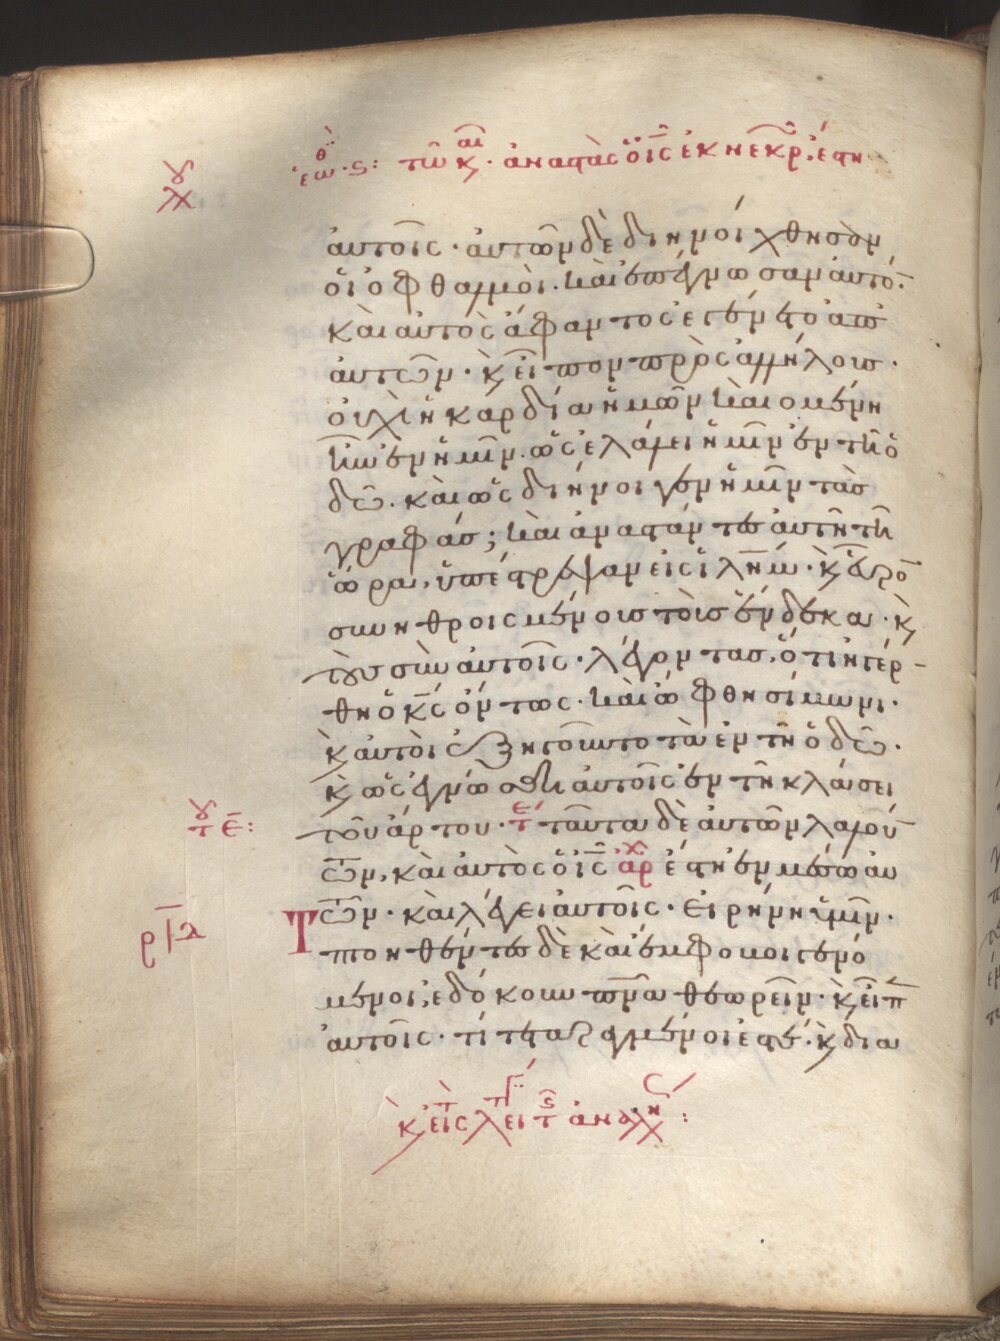 ἑωθ ϛ: τῶ κ αι. ἀναστὰς ὁ ἰς ἐκ νεκρ, ἔστη
αὐτοῖς· αὐτῶν δὲ διηνοίχθησαν
οἱ ὀφθαλμοὶ. καὶ ἐπέγνωσαν αὐτό.
καὶ αὐτὸς ἄφαντος ἐγένετο ἀπ
αὐτῶν· κ εἶπον πρὸς ἀλλήλους·
οὐχὶ ἡ καρδία ἡμῶν καιομένη
ἦν ἐν ἡμῖν. ὡς ἐλάλει ἡμῖν ἐν τῆ ὁ
δῶ. καὶ ὡς διήνοιγεν ἡμῖν τὰς
γραφάς; καὶ ἀναστάντες αὐτῆ τῆ
ὥρα, ὑπέστρεψαν εἰς ἱλημ· κ εὗρο
συνηθροισμένους τοὺς ἕνδεκα· κ
τοὺς σὺν αὐτοῖς· λέγοντας, ὅτι ἠγέρ-
θη ὁ κς ὄντως· καὶ ὤφθη σίμωνι·
κ αὐτοὶ ἐξηγοῦντο τὰ ἐν τῆ ὁδῶ·
κ ὡς ἐγνώσθη αὐτοῖς ἐν τῆ κλάσει
τε: τοῦ ἄρτου· τε ταῦτα δὲ αὐτῶν λαλούν
των, καὶ αὐτὸς ὁ ἰς αρχ ἔστη ἐν μέσω αυ
τῶν· καὶ λέγει αὐτοῖς· εἰρήνη ὑμῖν·
Πτοηθέντες δὲ καὶ ἔμφοβοι γενό
μενοι, ἐδόκουν πνα θεωρεῖν· κ εἶπ
αὐτοῖς· τί τεταραγμένοι ἐστέ· κ δια